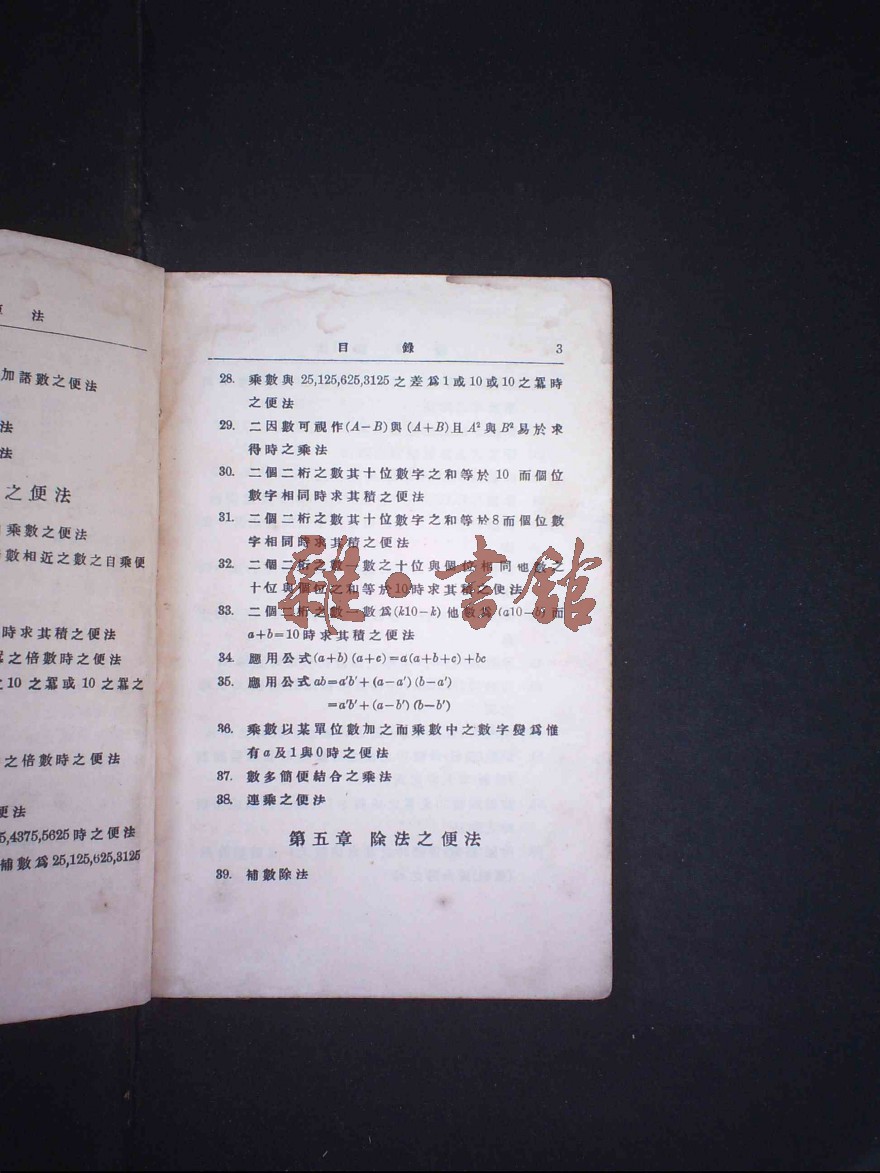 法
加諸數之便法
法
法
之便法
乘數之便法
數相近之數之自乘便
時求其積之便法
之倍數時之便法
10 之冪或 10 之冪之
之倍數時之便法
便法
5,4375,5625 時之便法
補數爲 25,125,625,3125
目 錄 3
28. 乘數與 25,125,625,3125 之差爲 1 或 10 或 10 之冪時
之便法
29. 二因數可視作 (A−B) 與 (A+B) 且 A² 與 B² 易於求
得時之乘法
30. 二個二桁之數其十位數字之和等於 10 而個位
數字相同時求其積之便法
31. 二個二桁之數其十位數字之和等於 8 而個位數
字相同時求其積之便法
32. 二個二桁之數一數之十位與個位相同他數之
十位與個位之和等於 10 時求其積之便法
33. 二個二桁之數一數爲 (k10−k) 他數爲 (a10−b) 而
a+b=10 時求其積之便法
34. 應用公式 (a+b) (a+c)=a(a+b+c)+bc
35. 應用公式 ab=a′b′+(a−a′) (b−a′)
=a′b′+(a−b′) (b−b′)
36. 乘數以某單位數加之而乘數中之數字變爲惟
有 a 及 1 與 0 時之便法
37. 數多簡便結合之乘法
38. 連乘之便法
第五章 除法之便法
39. 補數除法
雜·書館